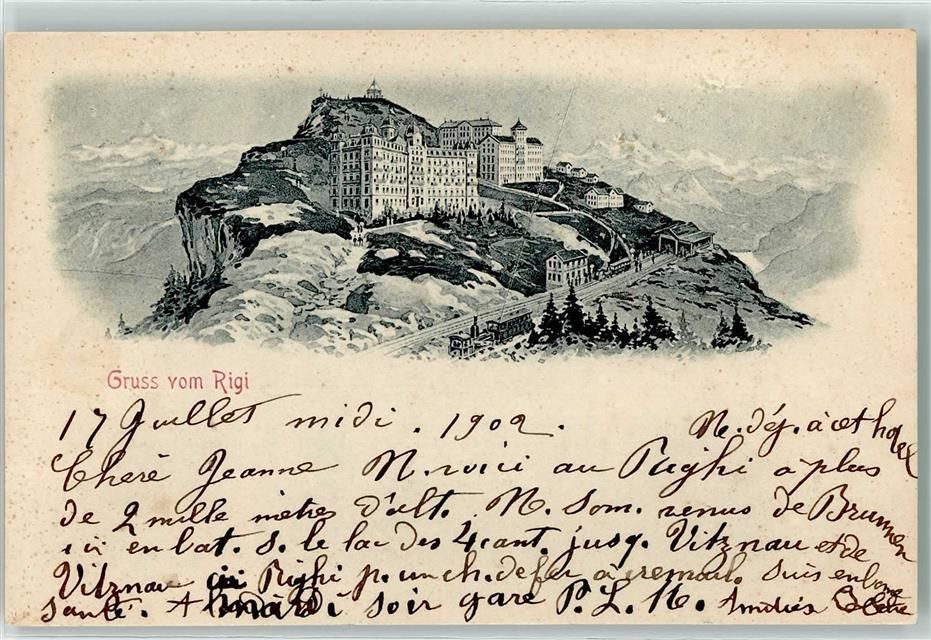 Gruss vom Rigi
17 Juillet midi . 1902 .
N. déj. à cet hotel
Chere Jeanne N. voici au Righi a plus
de 2 mille mètres d'alt. N. som. venus de Brunnen
ici en bat. s. le lac des 4 cant. jusq. Vitznau et de
Vitznau Righi p. un ch. de fer à cremail. Suis en bonne
santé. A mardi soir gare P. L. M. Amitiés